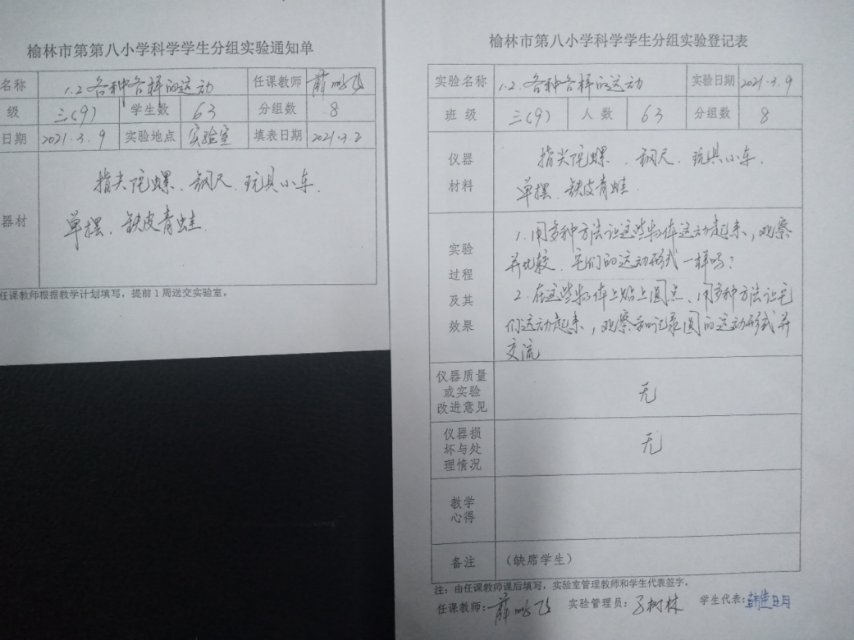 榆林市第第八小学科学学生分组实验通知单
名称 1.2各种各样的运动 任课教师 薛鹏飞
级 三(9) 学生数 63 分组数 8
日期 2021.3.9 实验地点 实验室 填表日期 2021.3.2
器材 指尖陀螺、钢尺、玩具小车、
单摆、铁皮青蛙
任课教师根据教学计划填写，提前1周送交实验室。
榆林市第第八小学科学学生分组实验登记表
实验名称 1.2.各种各样的运动 实验日期 2021.3.9
班 级 三(9) 人 数 63 分组数 8
仪器 指尖陀螺、钢尺、玩具小车、
材料 单摆、铁皮青蛙
实验 1.用多种方法让这些物体运动起来，观察
过程 并比较，它们的运动形式一样吗？
及其 2.在这些物体上贴上圆点、用多种方法让它
效果 们运动起来，观察和记录圆的运动形式并
交流
仪器质量
或实验 无
改进意见
仪器损
坏与处 无
理情况
教学
心得
备注 （缺席学生）
注：由任课教师课后填写，实验室管理教师和学生代表签字。
任课教师：薛鹏飞 实验管理员：树林 学生代表：